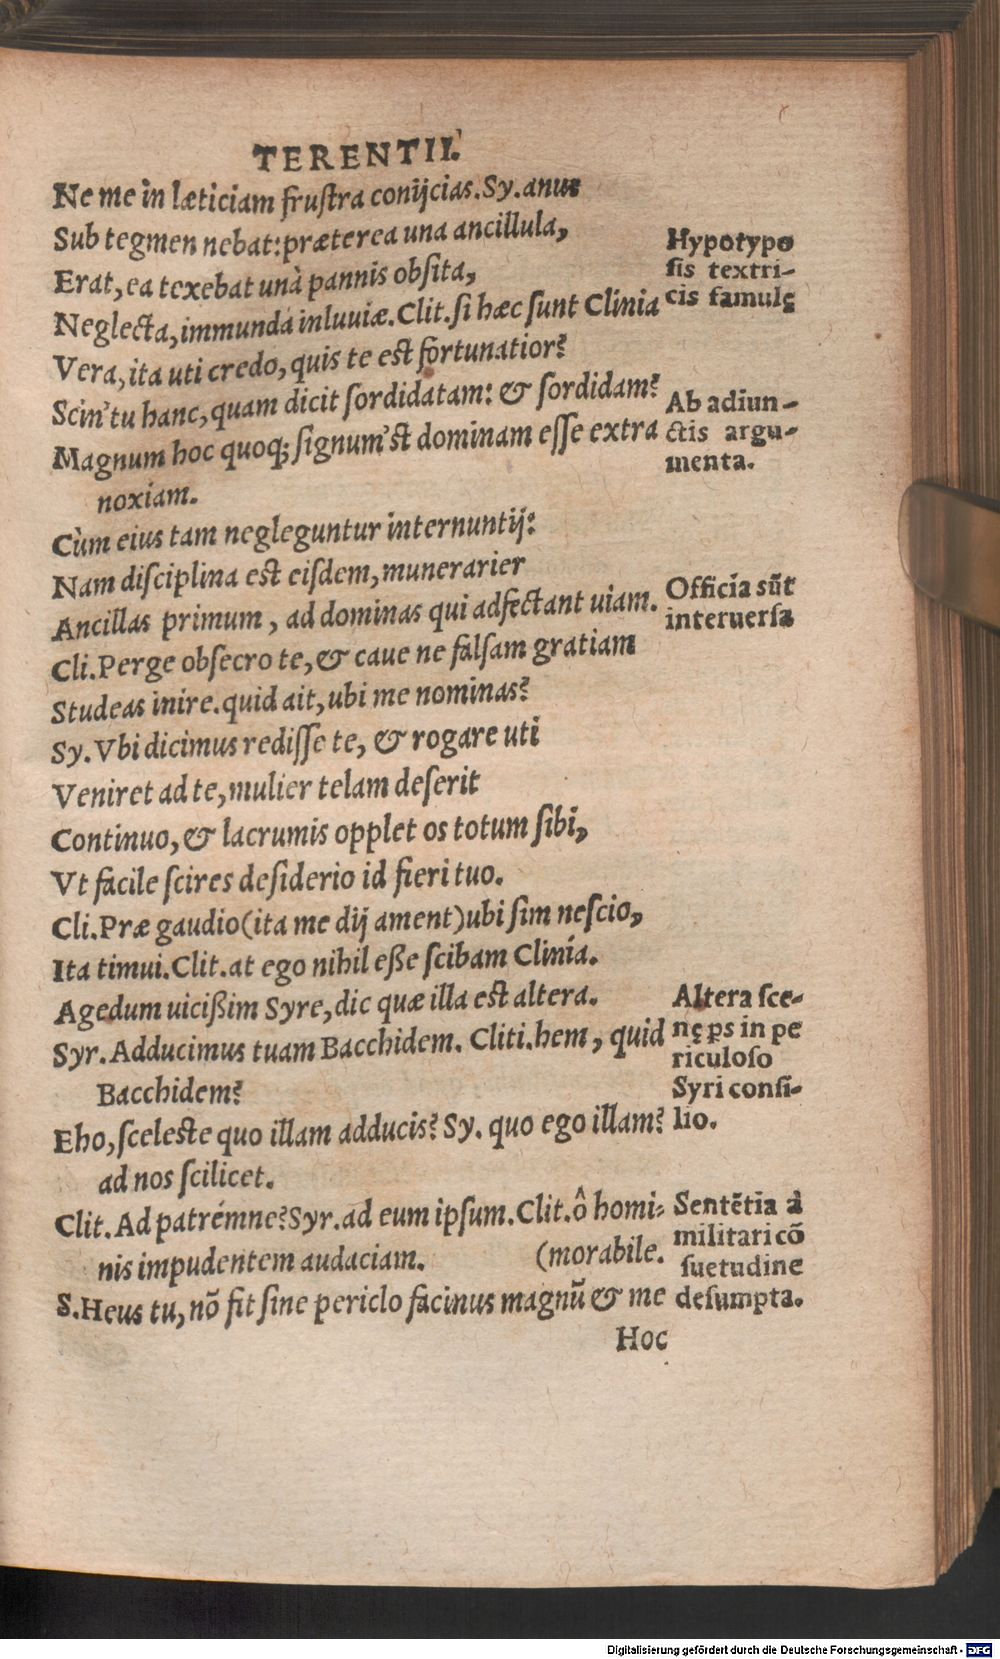 TERENTII.
Ne me in læticiam frustra conijcias. Sy. anus
Sub tegmen nebat: præterea una ancillula,
Erat, ea texebat unà pannis obsita,
Neglecta, immunda inluuiæ. Clit. si hæc sunt Clinia
Vera, ita uti credo, quis te est fortunatior?
Scin' tu hanc, quam dicit sordidatam: & sordidam?
Magnum hoc quoq; signum'st dominam esse extra
noxiam.
Cùm eius tam negleguntur internuntij:
Nam disciplina est eisdem, munerarier
Ancillas primum, ad dominas qui adfectant uiam.
Cli. Perge obsecro te, & caue ne falsam gratiam
Studeas inire. quid ait, ubi me nominas?
Sy. Vbi dicimus redisse te, & rogare uti
Veniret ad te, mulier telam deserit
Continuo, & lacrumis opplet os totum sibi,
Vt facile scires desiderio id fieri tuo.
Cli. Præ gaudio (ita me dij ament) ubi sim nescio,
Ita timui. Clit. at ego nihil eße scibam Clinía.
Agedum uicißim Syre, dic quæ illa est altera.
Syr. Adducimus tuam Bacchidem. Cliti. hem, quid
Bacchidem?
Eho, sceleste quo illam adducis? Sy. quo ego illam?
ad nos scilicet.
Clit. Ad patrémne? Syr. ad eum ipsum. Clit. ô homi-
nis impudentem audaciam. (morabile.
S. Heus tu, nõ fit sine periclo facinus magnũ & me
Hoc
Hypotypo
sis textri-
cis famulę
Ab adiun-
ctis argu-
menta.
Officia sũt
interuersa
Altera sce-
nę ꝑs in pe
riculoso
Syri consi-
lio.
Sentẽtia à
militari cõ
suetudine
desumpta.
Digitalisierung gefördert durch die Deutsche Forschungsgemeinschaft - DFG